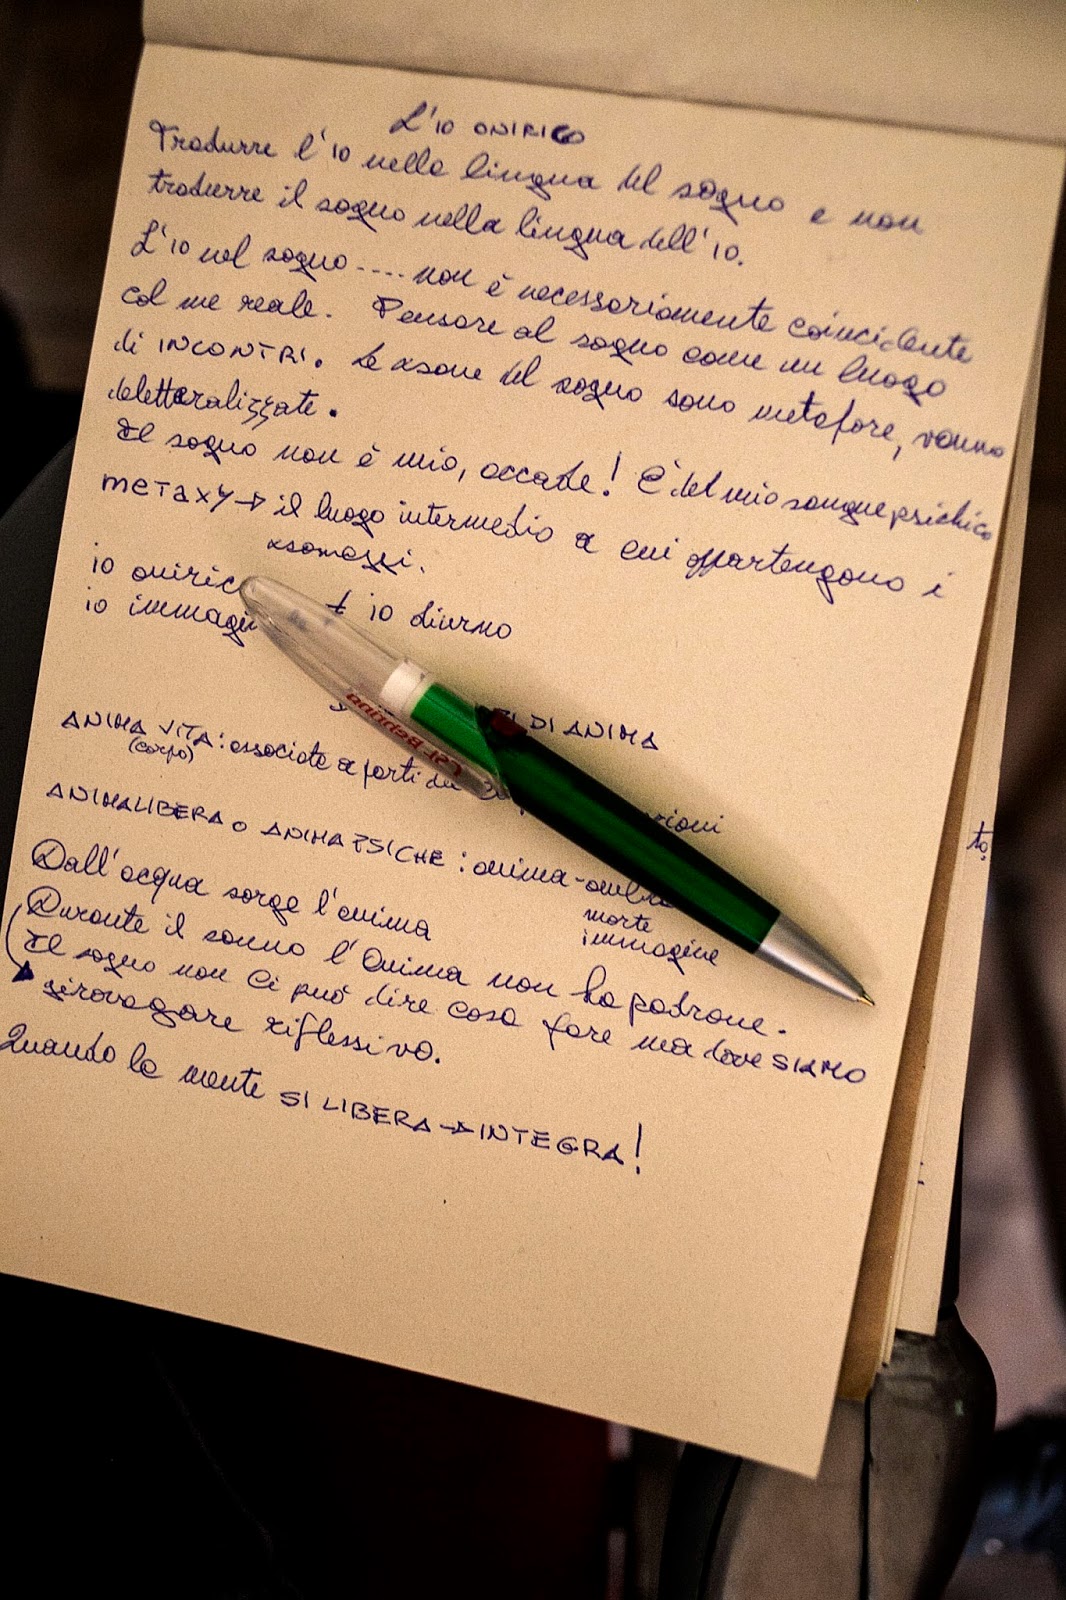 L'io ONIRICO
Tradurre l'io nella lingua del sogno e non
tradurre il sogno nella lingua dell'io.
L'io nel sogno .... non è necessariamente coincidente
col me reale. Pensare al sogno come un luogo
di INCONTRI. Le xsone del sogno sono metafore, vanno
deletteralizzate.
Il sogno non è mio, accade! È del mio sangue psichico
metaxy → il luogo intermedio a cui appartengono i
xsonaggi.
io oniric
≠ io diurno
io immagin
DI ANIMA
ANIMA VITA: associate a parti del
(corpo)
ANIMA LIBERA o ANIMA PSICHE: anima-ombra
morte
immagine
Dall'acqua sorge l'anima
Durante il sonno l'Anima non ha padrone.
Il sogno non ci può dire cosa fare ma dove SIAMO
→ girovagare riflessivo.
Quando la mente SI LIBERA → INTEGRA!
to.